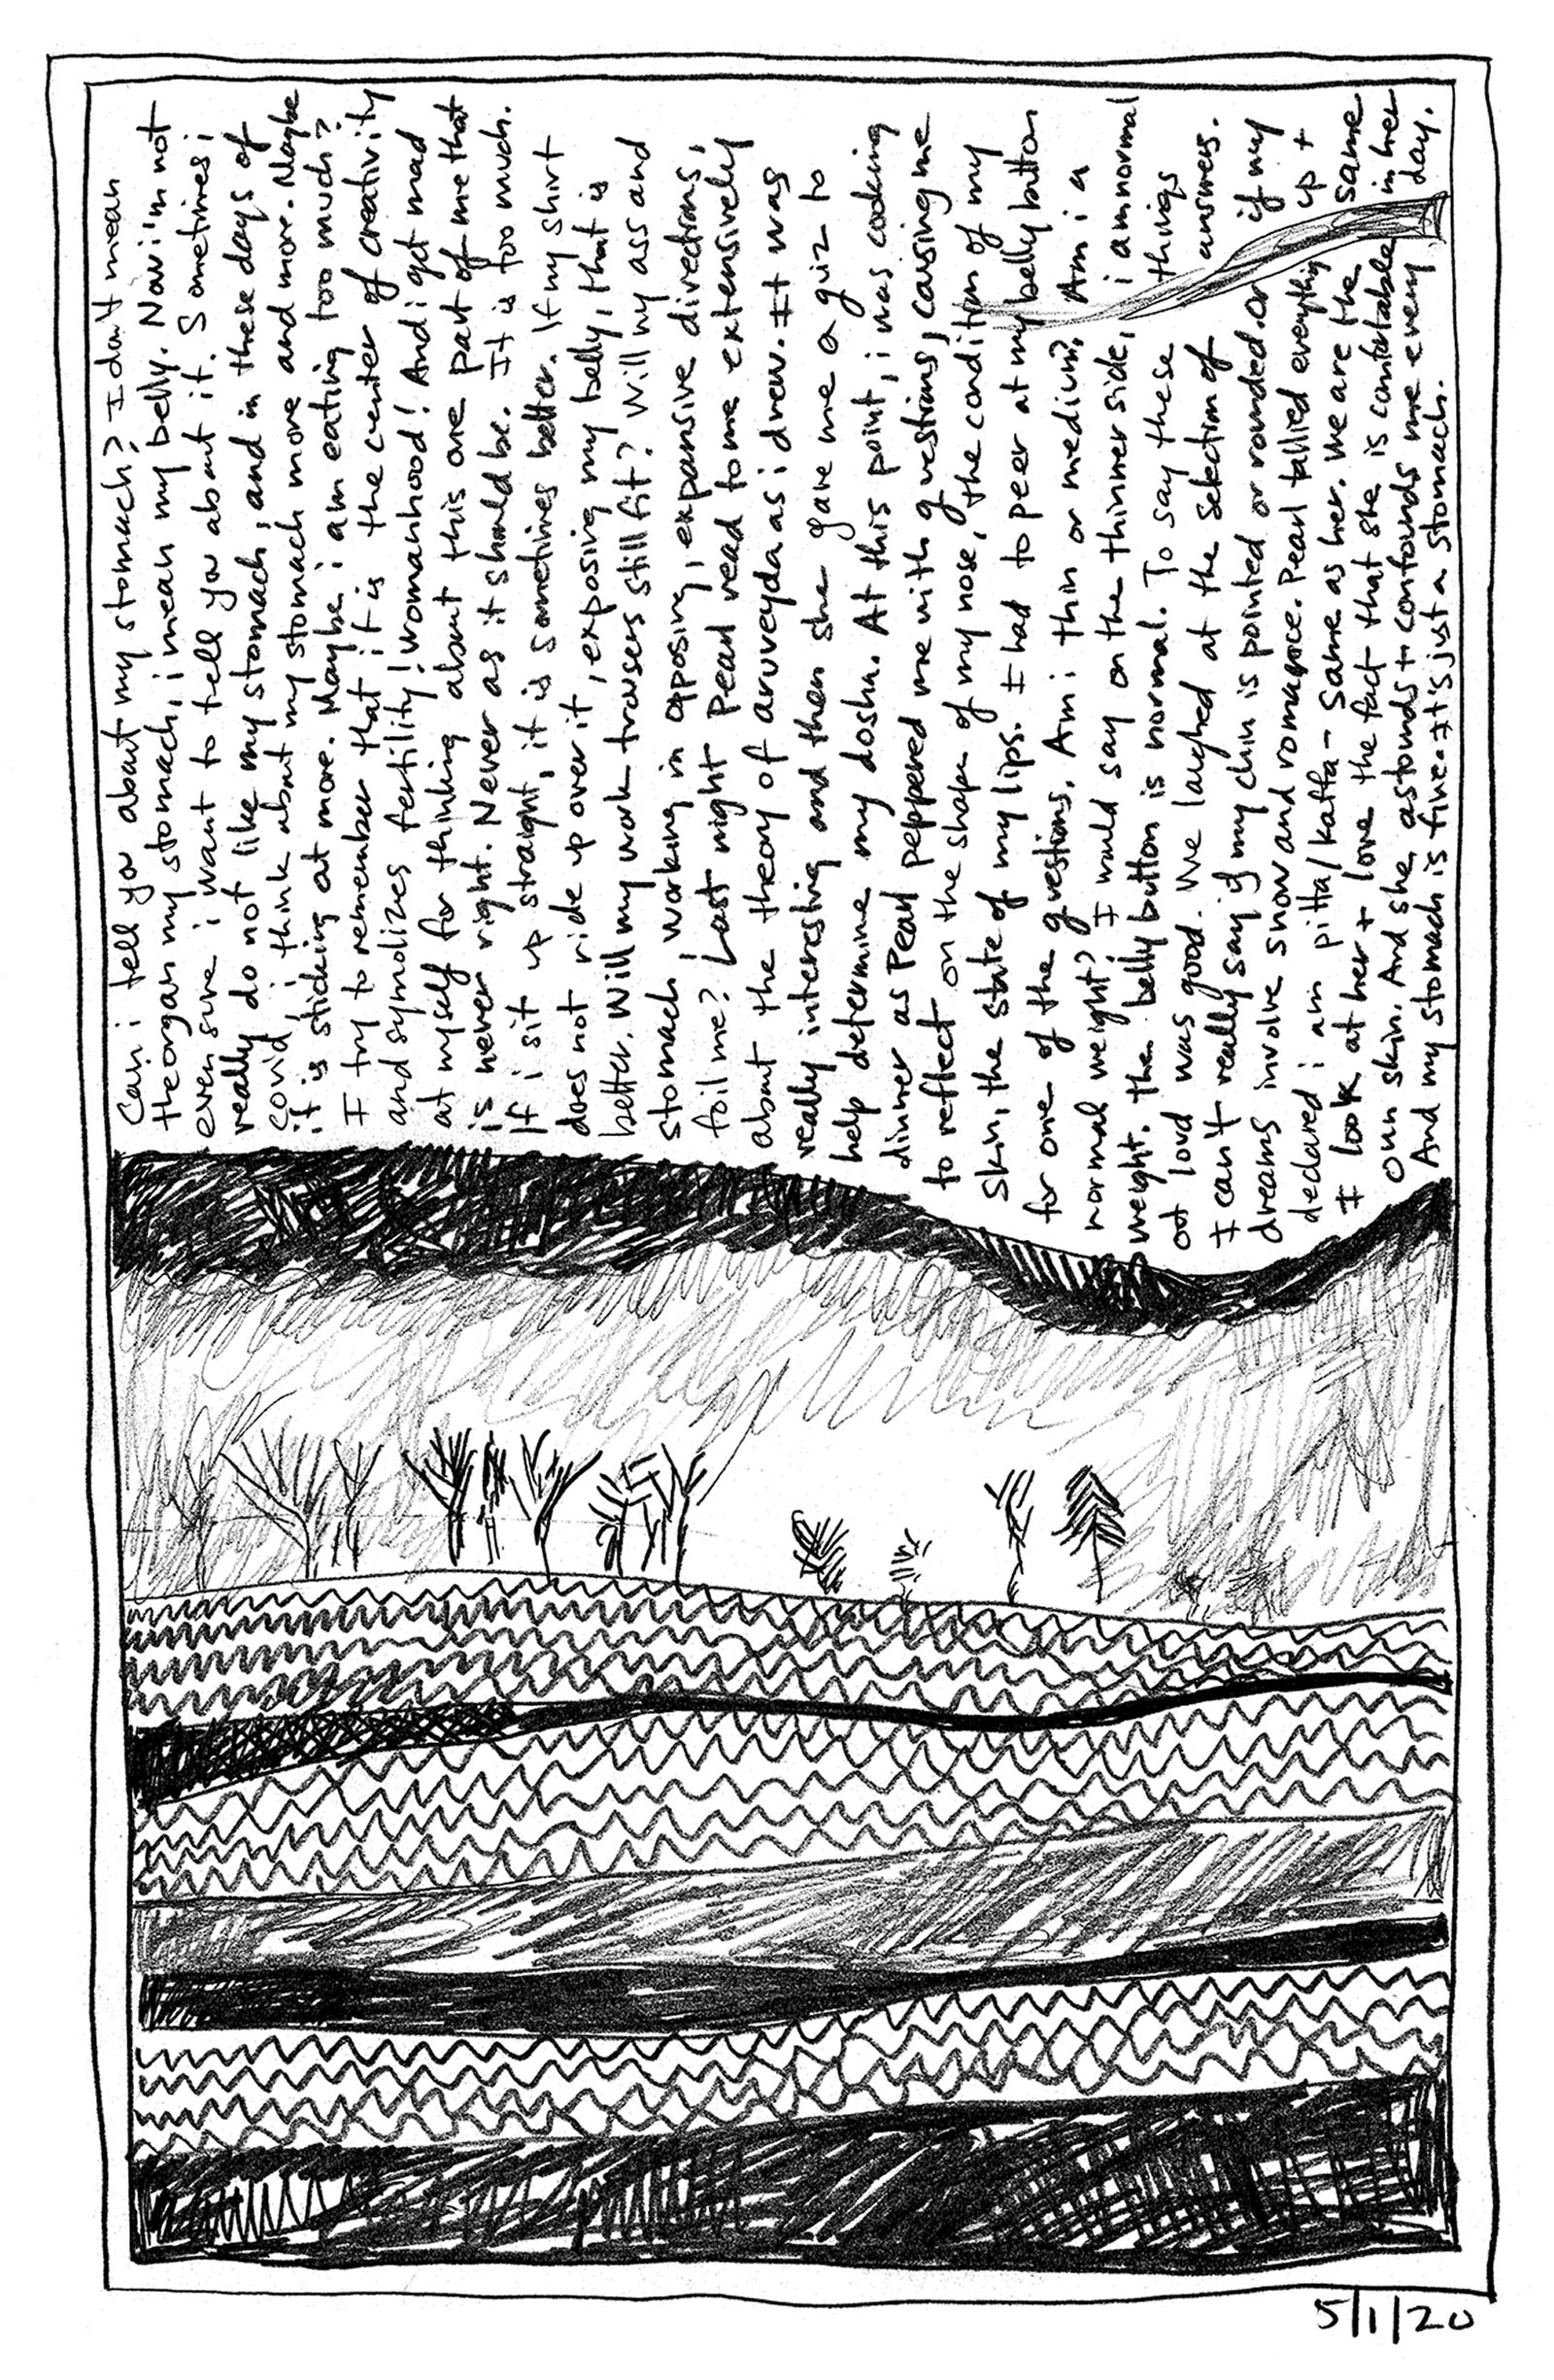 Can i tell you about my stomach? I don't mean
the organ my stomach, i mean my belly. Now i'm not
even sure i want to tell you about it. Sometimes i
really do not like my stomach, and in these days of
covid, i think about my stomach more and more. Maybe
it is sticking out more. Maybe i am eating too much?
I try to remember that it is the center of creativity
and symolizes fertility! Womanhood! And i get mad
at myself for thinking about this one part of me that
is never right. Never as it should be. It is too much.
If i sit up straight, it is sometimes better. If my shirt
does not ride up over it, exposing my belly, that is
better. Will my work trousers still fit? Will my ass and
stomach, working in opposing, expansive directions,
foil me? Last night Pearl read to me extensively
about the theory of aruveyda as i drew. It was
really interesting and then she gave me a quiz to
help determine my dosha. At this point, i was cooking
dinner as Pearl peppered me with questions, causing me
to reflect on the shape of my nose, the condition of my
skin, the state of my lips. I had to peer at my belly button
for one of the questions. Am i thin or medium? Am i a
normal weight? I would say on the thinner side, i am normal
weight. the belly button is normal. To say these things
out loud was good. We laughed at the selection of answers.
I can't really say if my chin is pointed or rounded. or if my
dreams involve snow and romance. Pearl tallied everything up +
declared i am pitta/kaffa - same as her. We are the same
I look at her + love the fact that she is comfortable in her
own skin. And she astounds + confounds me every day.
And my stomach is fine. It's just a stomach.
5/1/20